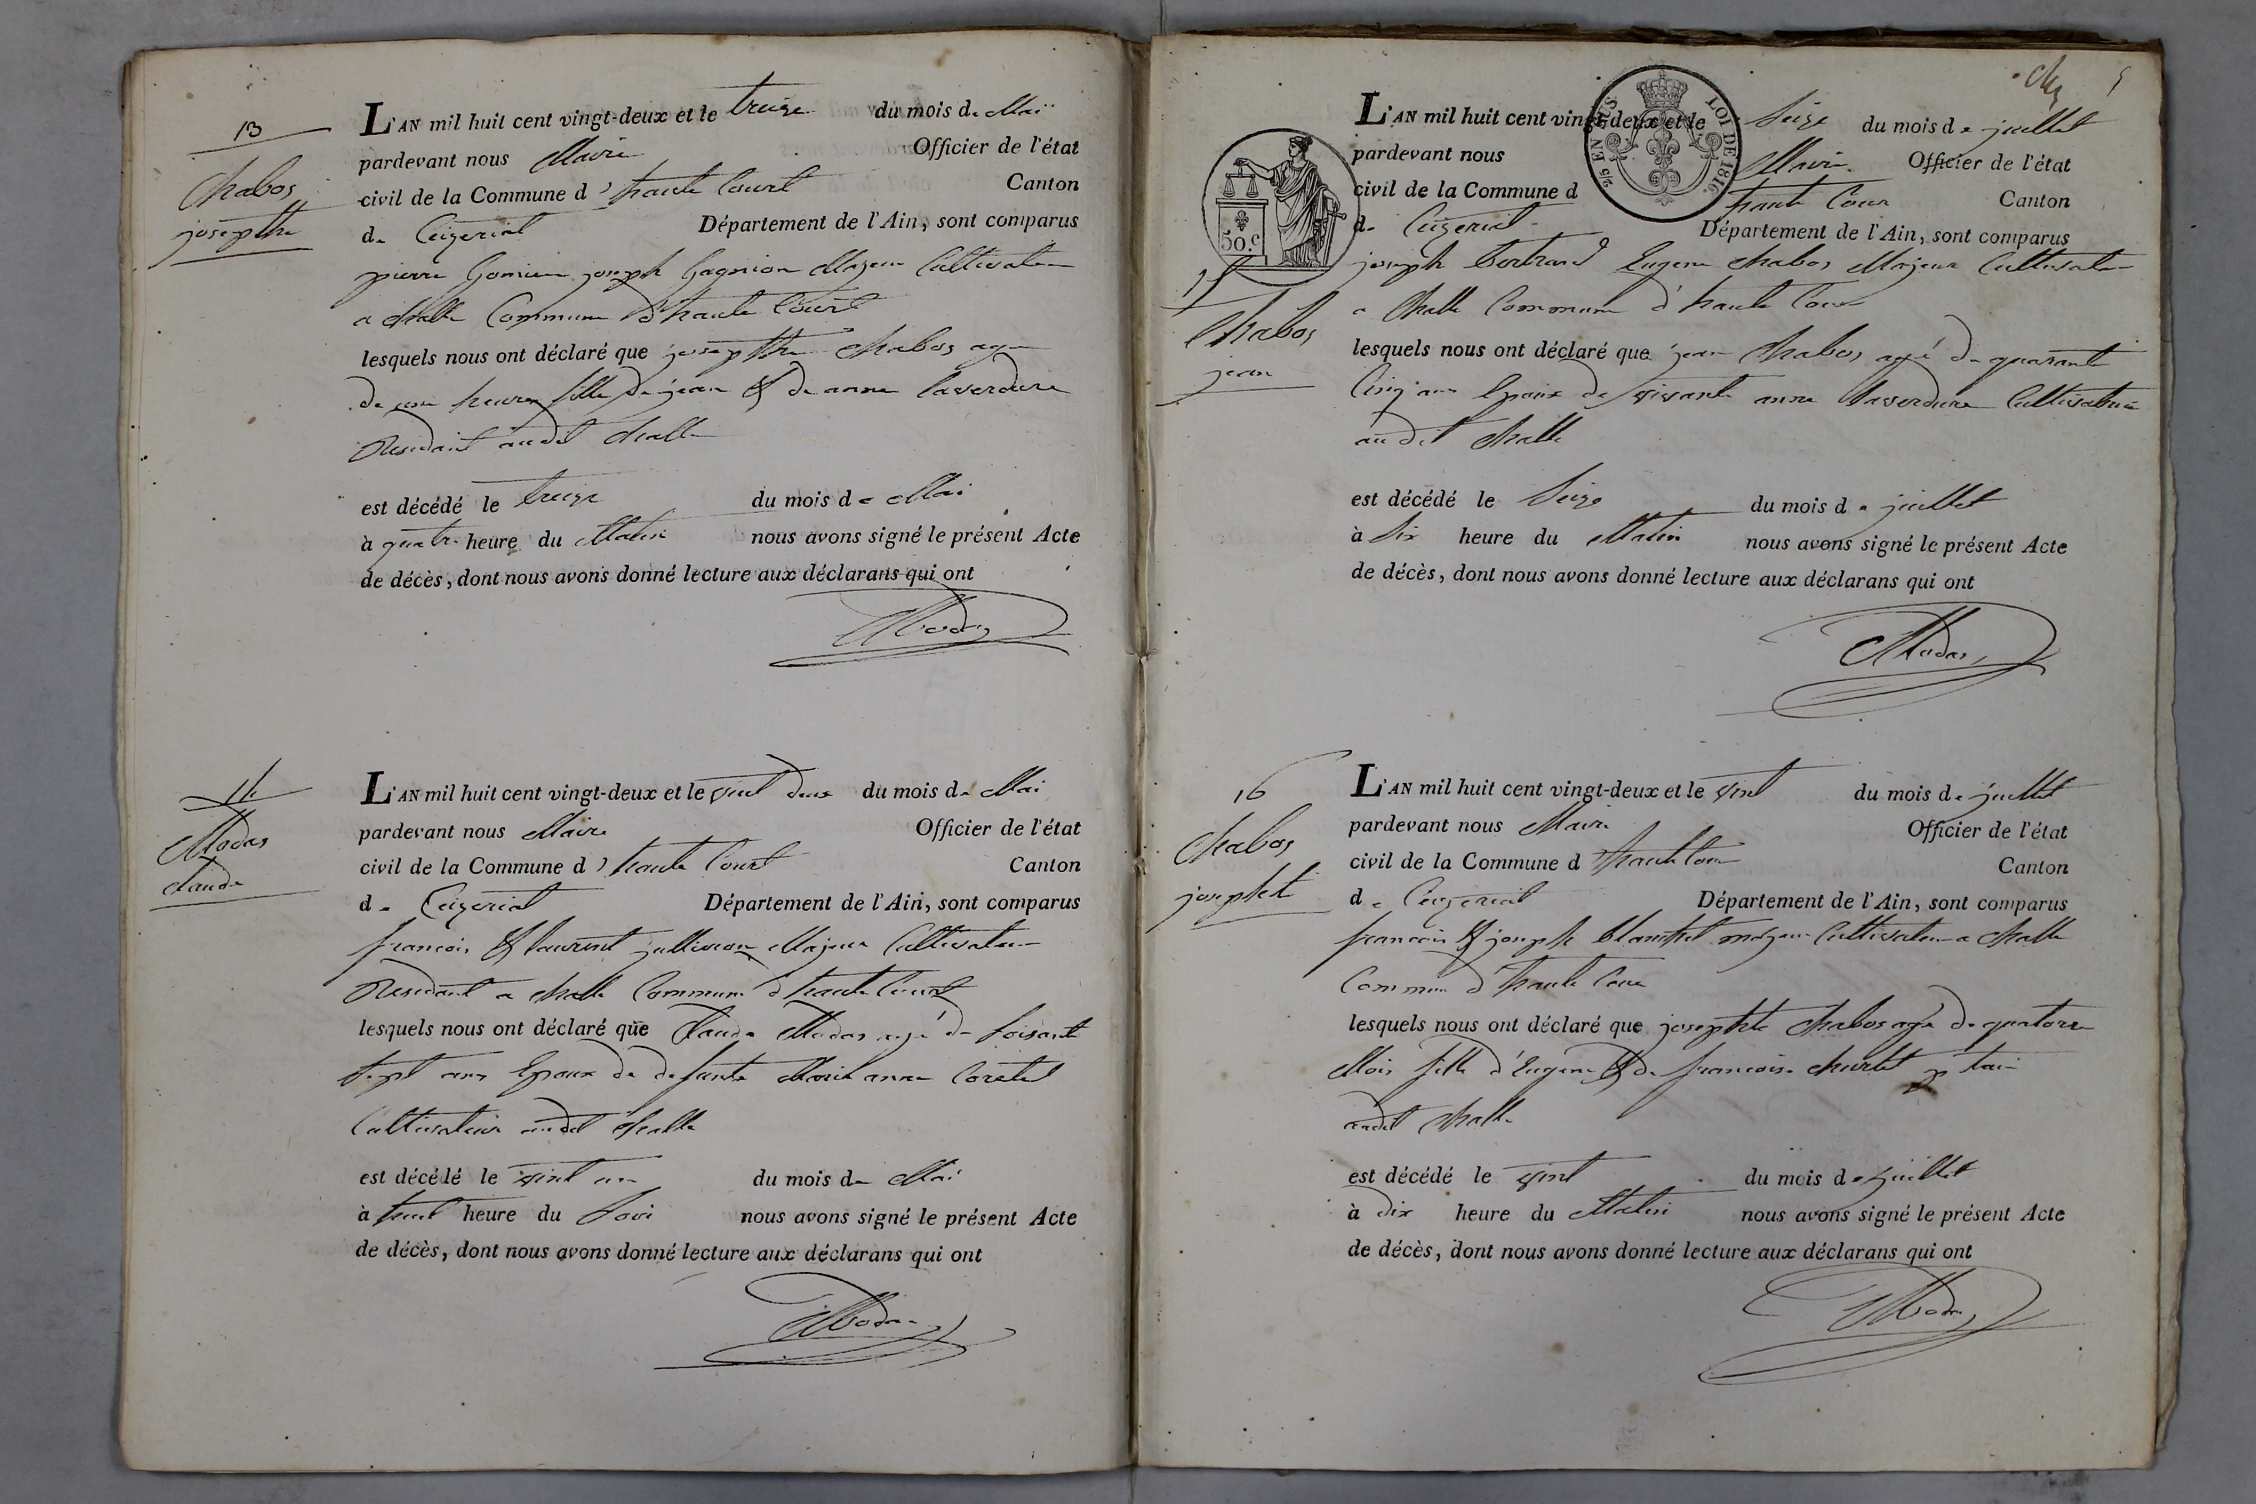 13
Chabos
josephte
L'AN mil huit cent vingt-deux et le treize du mois de Mai
pardevant nous Maire Officier de l'état
civil de la Commune d'haute Court Canton
de Ceizeriat Département de l'Ain, sont comparus
pierre joseph Gagnion Majeur Cultivateur
a Challe Commune d'haute Court
lesquels nous ont déclaré que josephte Chabos age
de une heure fille de jean & de anne laverdure
Residant audit Challe
est décédé le treize du mois de Mai
à quatre heure du Matin nous avons signé le présent Acte
de décès, dont nous avons donné lecture aux déclarans qui ont
Modas
14
Modas
claude
L'AN mil huit cent vingt-deux et le vint deux du mois de Mai
pardevant nous Maire Officier de l'état
civil de la Commune d'haute Court Canton
de Ceizeriat Département de l'Ain, sont comparus
francois & laurent Majeur Cultivateur
Residant a Challe Commune d'haute Court
lesquels nous ont déclaré que Claude Modas agé de soisante
sept ans Epoux de defunte Marie anne
Cultivateur audit Challe
est décédé le vint un du mois de Mai
à huit heure du Soir nous avons signé le présent Acte
de décès, dont nous avons donné lecture aux déclarans qui ont
Modas
5
2/5 EN SUS
LOI DE 1816.
50.c
15
Chabos
jean
L'AN mil huit cent vingt-deux et le Seize du mois de juillet
pardevant nous Maire Officier de l'état
civil de la Commune d haute Cour Canton
de Ceizeriat Département de l'Ain, sont comparus
joseph bertrand Eugene Chabos Majeur Cultivateur
a Challe Commune d'haute Cour
lesquels nous ont déclaré que jean Chabos agé de quarante
Cinq ans Epoux de vivante anne laverdure Cultivateur
audit Challe
est décédé le Seize du mois de juillet
à Six heure du Matin nous avons signé le présent Acte
de décès, dont nous avons donné lecture aux déclarans qui ont
Modas
16
Chabos
josephte
L'AN mil huit cent vingt-deux et le vint du mois de juillet
pardevant nous Maire Officier de l'état
civil de la Commune d'haute Cour Canton
de Ceizeriat Département de l'Ain, sont comparus
francois & joseph blanchet majeur Cultivateur a Challe
Commune d'haute Cour
lesquels nous ont déclaré que josephte Chabos agé de quatorze
Mois fille d'Eugene & de francoise
audit Challe
est décédé le vint du mois de juillet
à dix heure du Matin nous avons signé le présent Acte
de décès, dont nous avons donné lecture aux déclarans qui ont
Modas